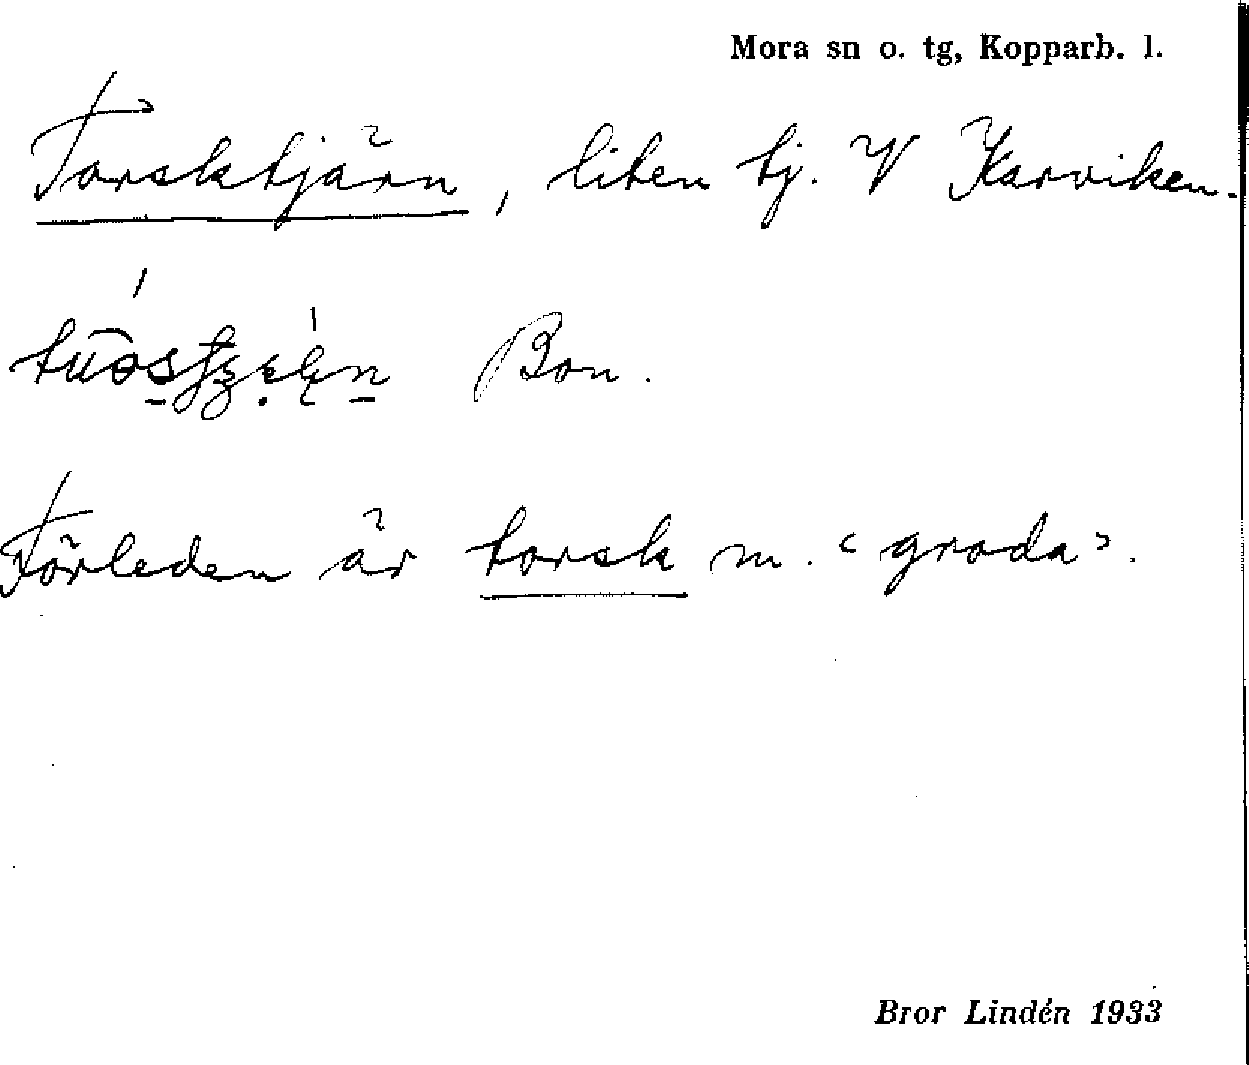 Mora sn o. tg, Kopparb. l.
Torsktjärn, liten tj. V
Bon.
Förleden är torsk m. ‹groda›.
Bror Lindén 1933